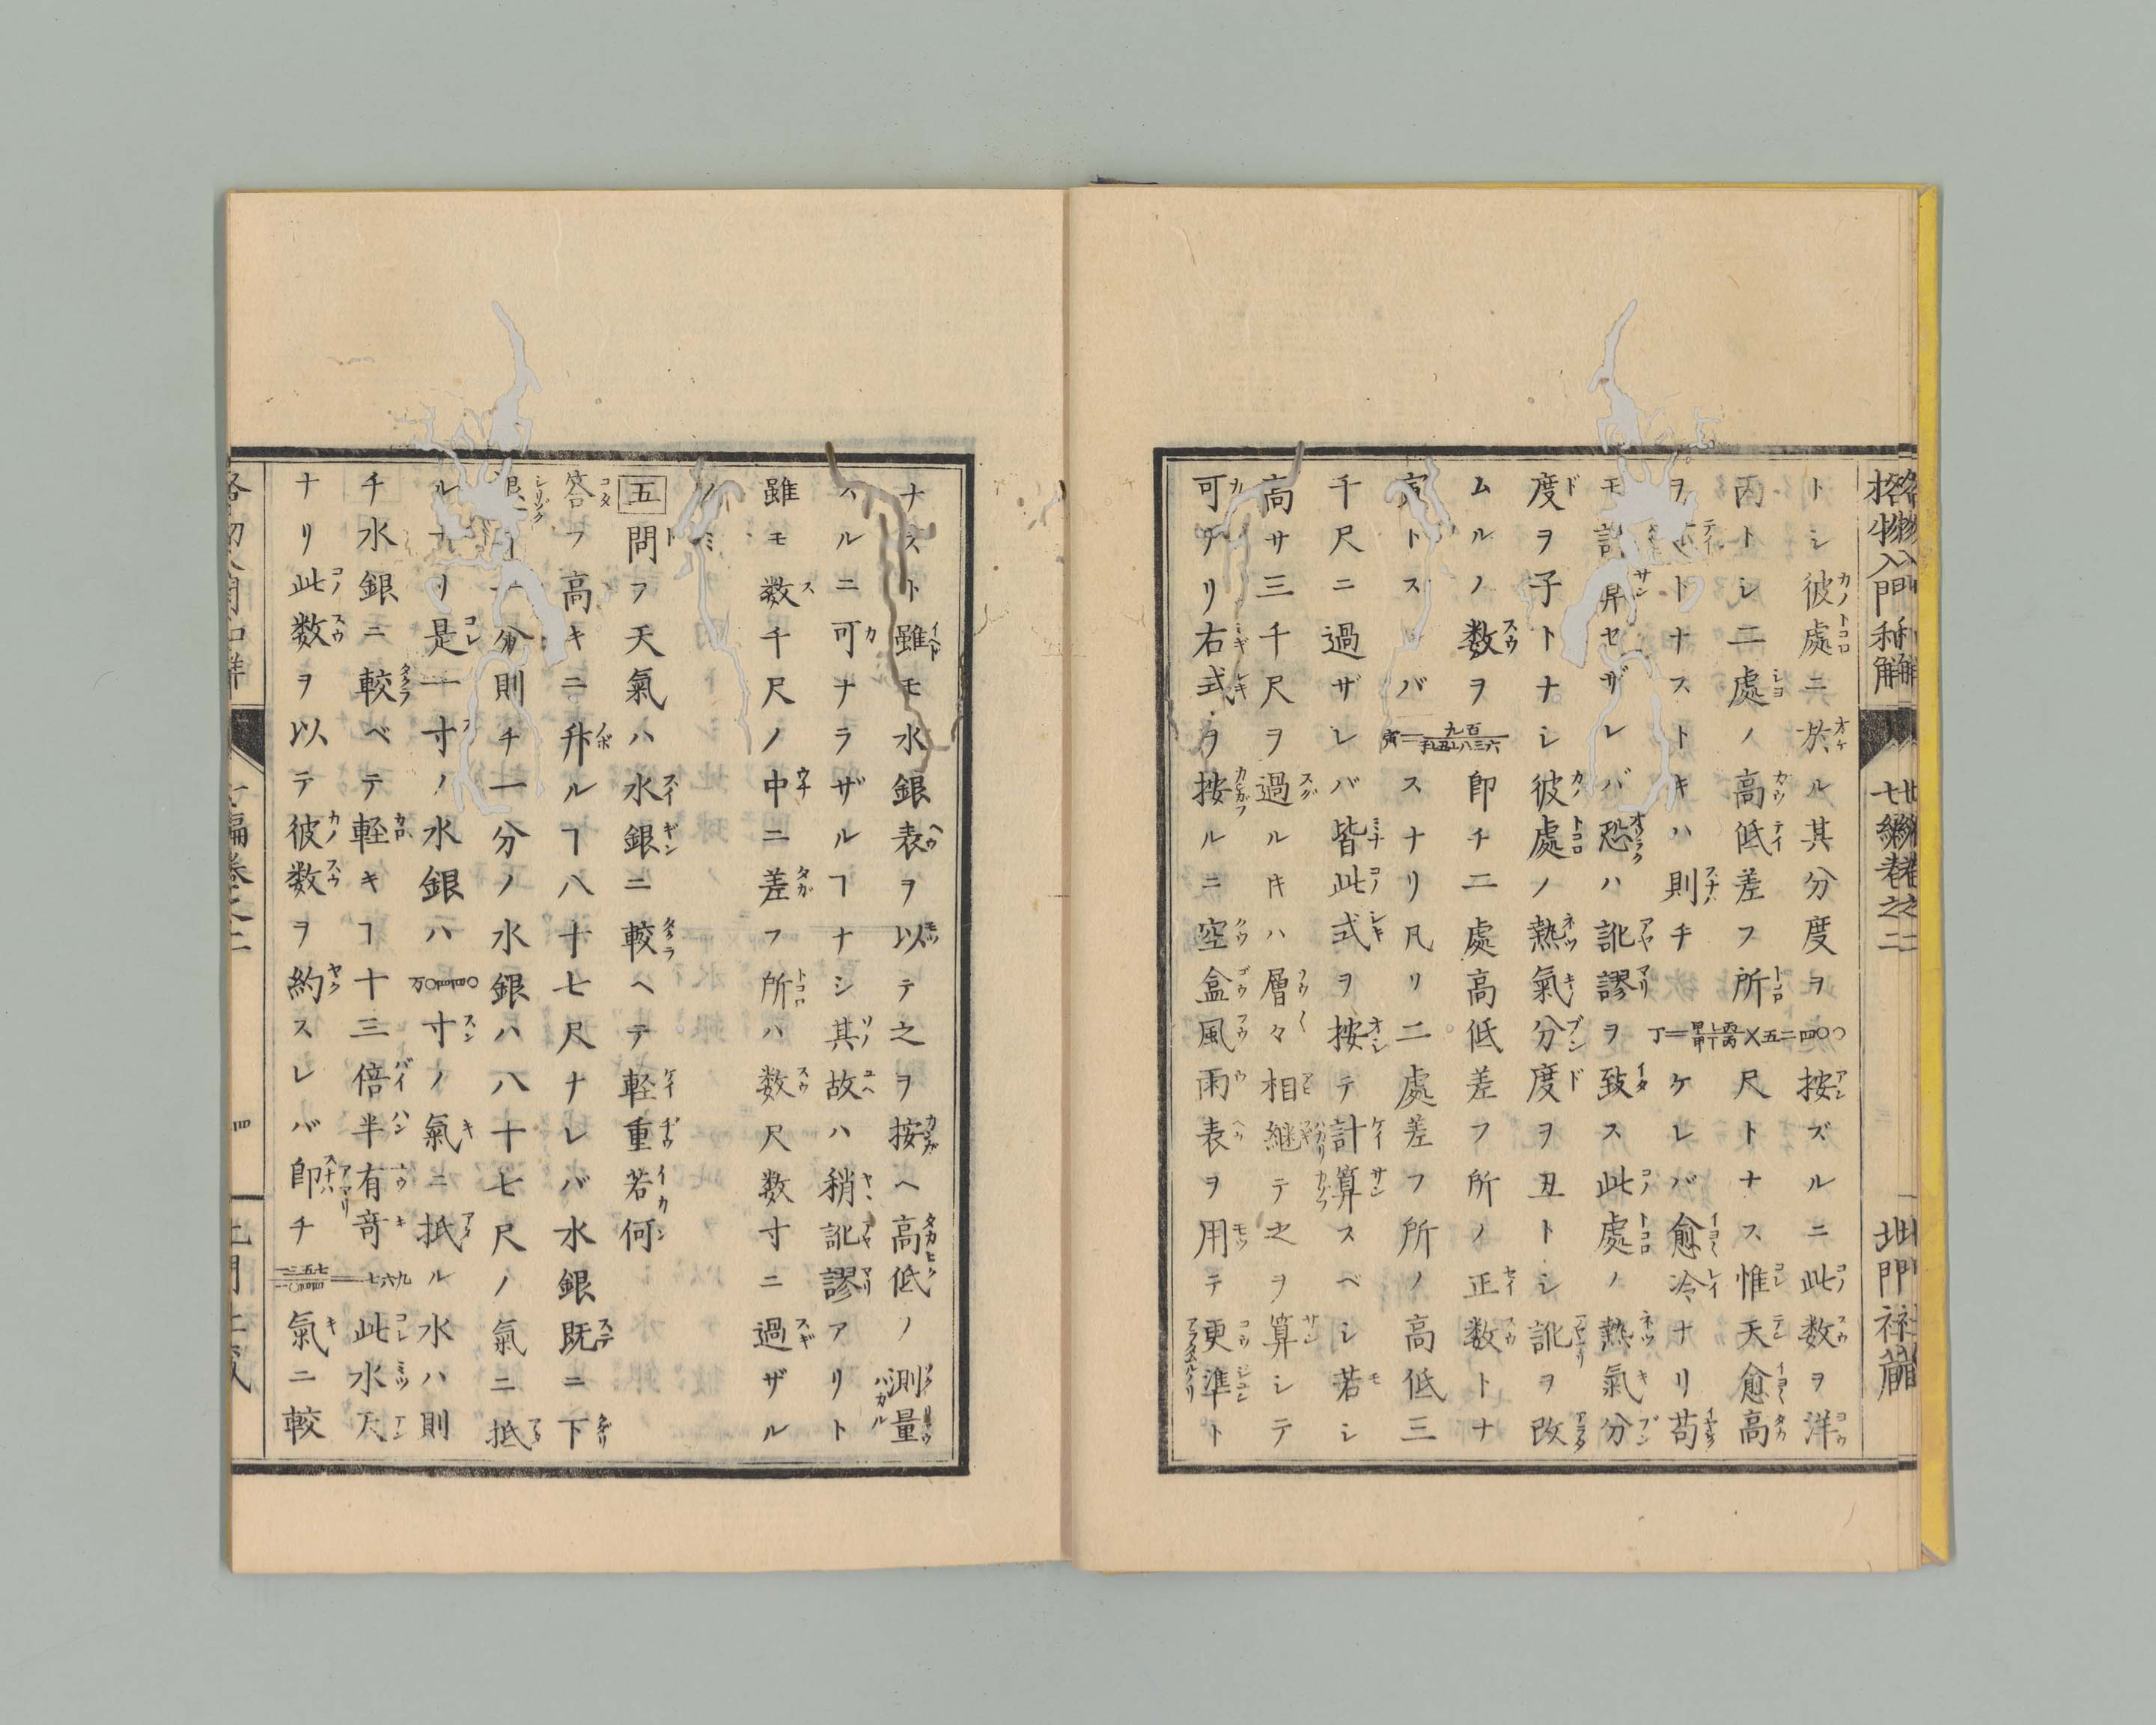 格物入門和解
七編巻之二
北門社蔵
トシ彼處ニ於ル其分度ヲ〇〇四二五按ズルニ此数ヲ洋
丙トシ二處ノ高低差フ所尺トナス惟天愈高
ヲトナストキハ則チケレバ愈冷ナリ苟
モ計算セザレバ恐ハ訛謬ヲ致ス此處ノ熱氣分
度ヲ子トナシ彼處ノ熱氣分度ヲ丑トシ訛ヲ改
ムルノ数ヲ即チ二處高低差フ所ノ正数トナ
寅トスレバスナリ凡リ二處差フ所ノ高低三
千尺ニ過ザレバ皆此式ヲ按テ計算スベシ若シ
高サ三千尺ヲ過ルキハ層々相継テ之ヲ算シテ
可ナリ右式ヲ按ルニ空盒風雨表ヲ用テ更準ト
ナスト雖モ水銀表ヲ以テ之ヲ按ヘ高低ノ測量
ハルニ可ナラザルヿナシ其故ハ稍訛謬アリト
雖モ数千尺ノ中ニ差フ所ハ数尺数寸ニ過ザル
ノミ
五問ヲ天氣ハ水銀ニ較ヘテ軽重若何
答フ高キニ升ルヿ八十七尺ナレバ水銀既ニ下
一分則チ一分ノ水銀ハ八十七尺ノ氣ニ抵
ルナリ是一寸ノ水銀ハ万〇四四〇寸ノ氣ニ抵ル水ハ則
チ水銀ニ較ベテ軽キヿ十三倍半有奇此水天
ナリ此数ヲ以テ彼数ヲ約スレバ即チ七六九氣ニ較
編巻之二
四